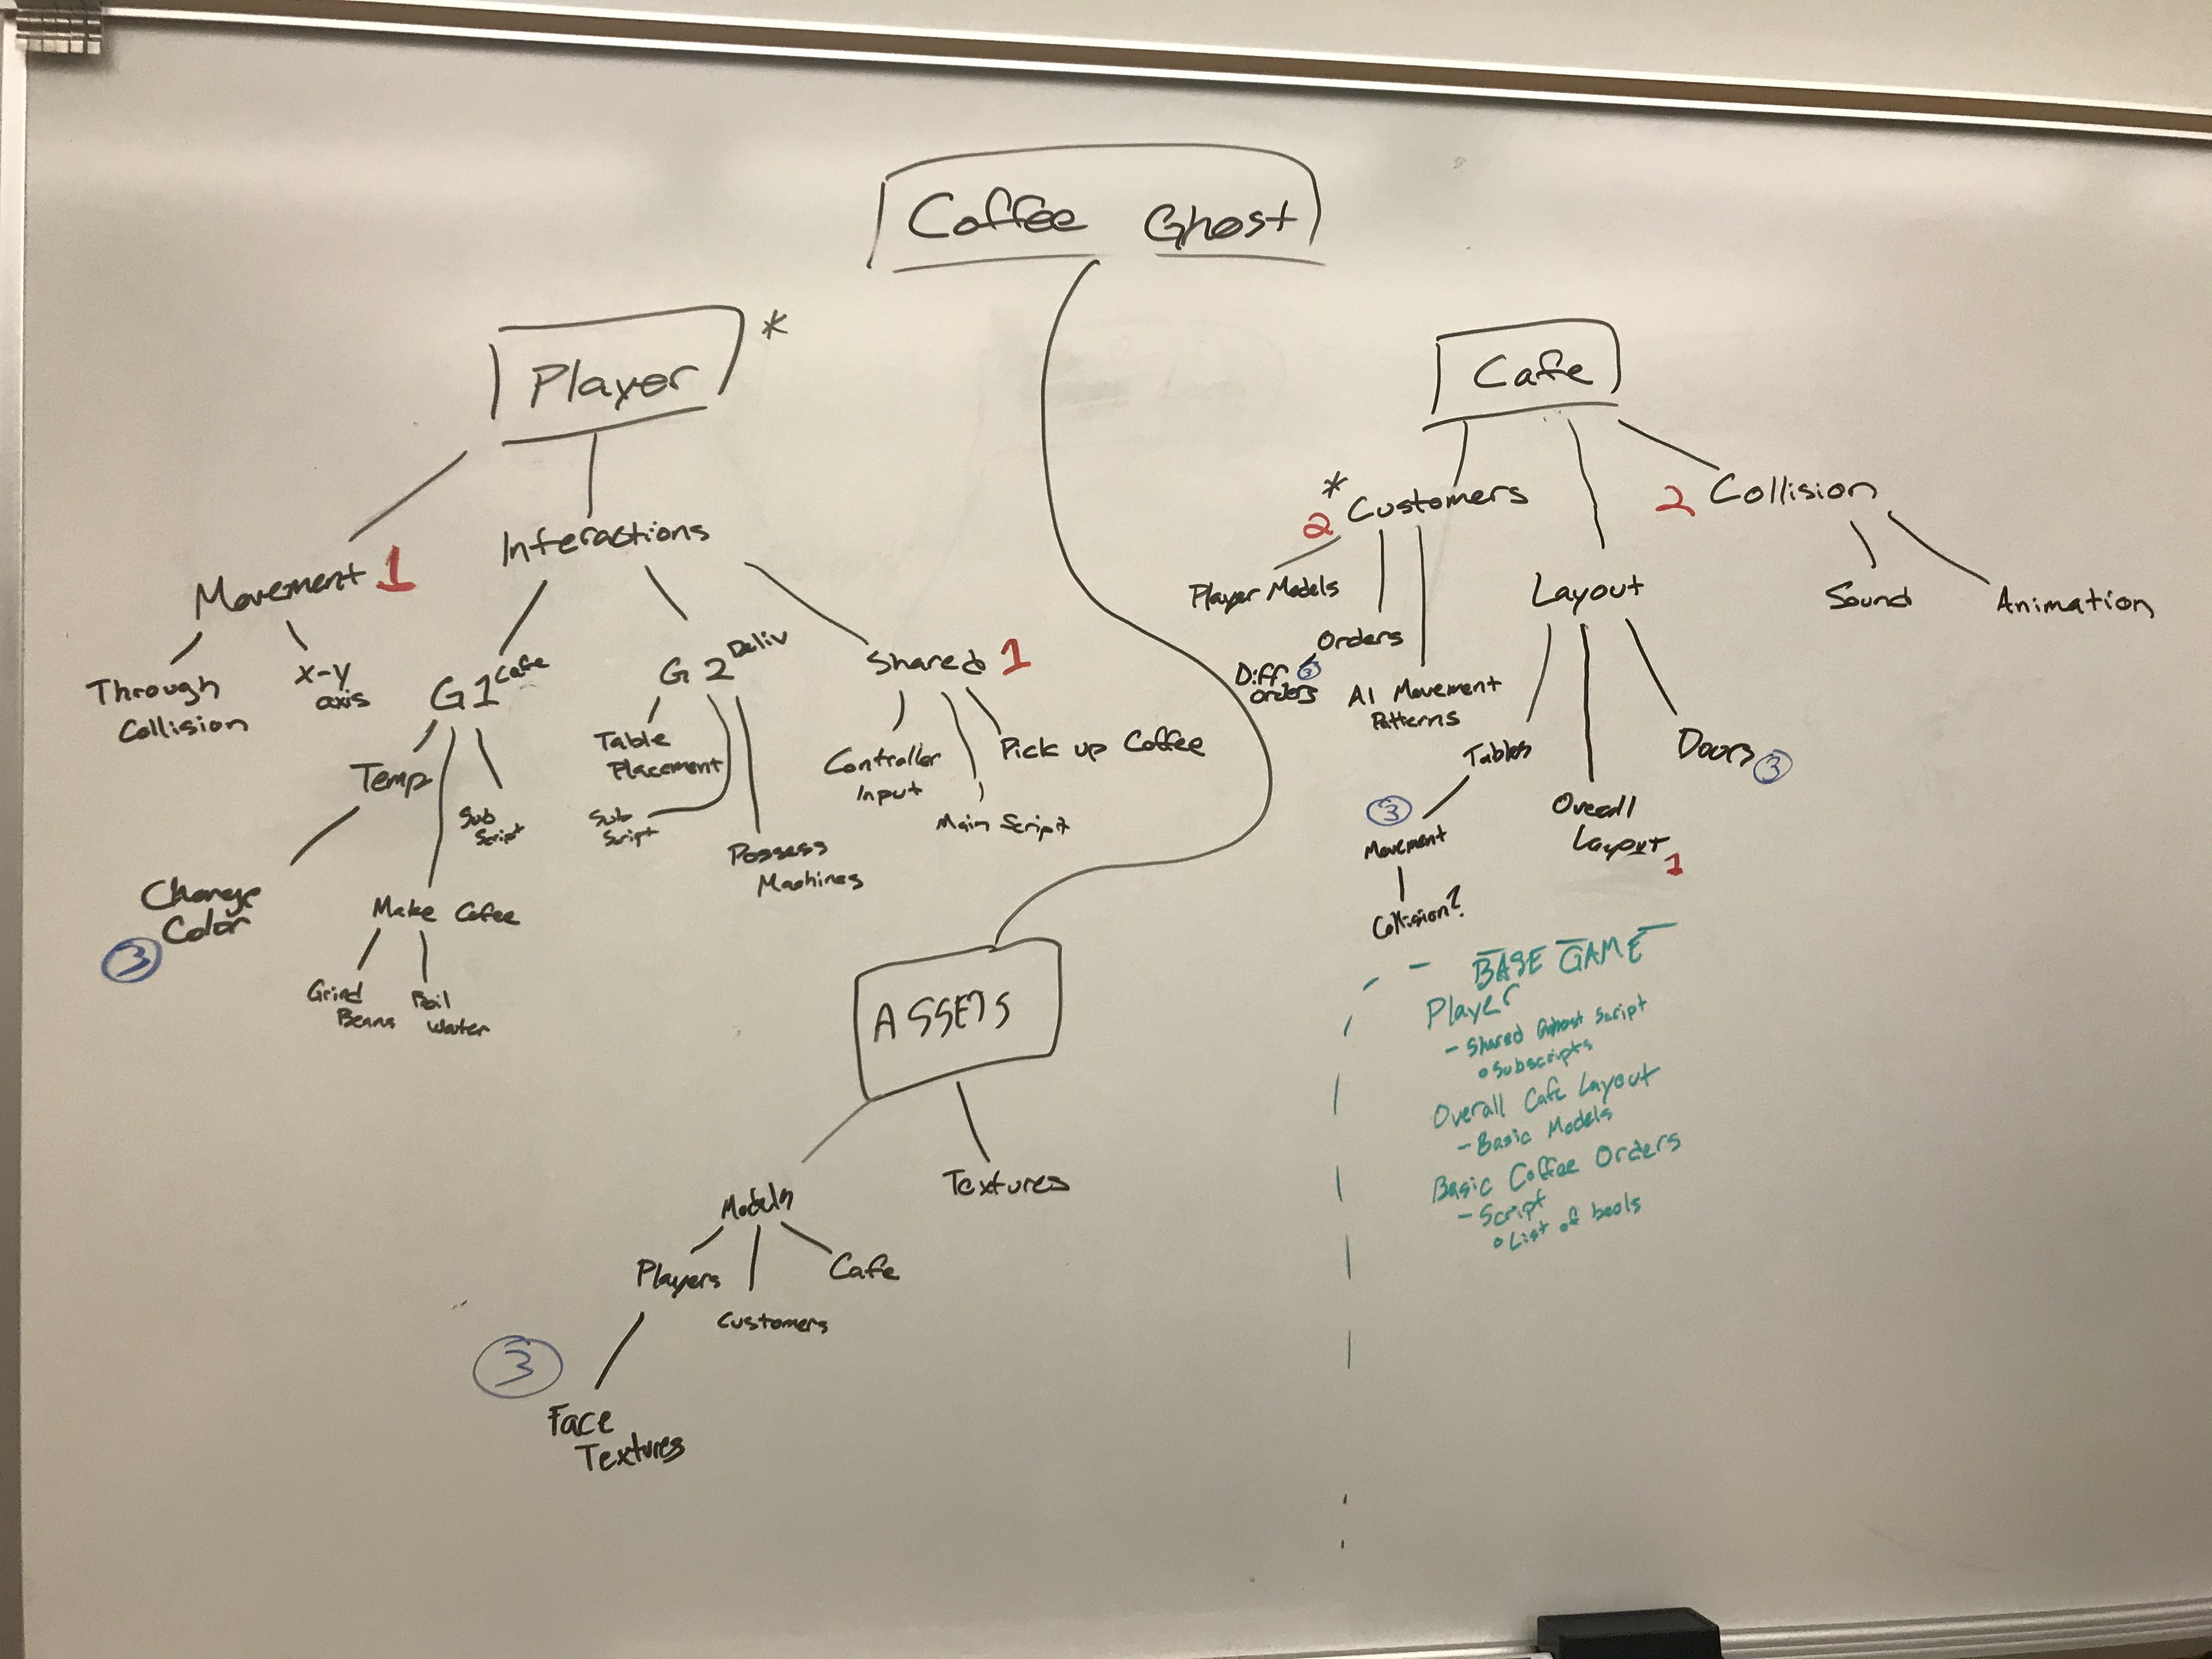 Coffee Ghost
Player *
Movement 1
Through
Collision
x-y
axis
Interactions
G1 Cafe
Temp
Change
Color
3
Sub
Script
Make Cofee
Grind
Beans
Boil
Water
G2 Deliv
Table
Placement
Sub
Script
Possess
Machines
Shared 1
Controller
Input
Main Script
Pick up Coffee
Cafe
* Customers
2
Player Models
Orders
Diff 3
orders
AI Movement
Patterns
Layout
Tables
3
Movement
Collision?
Overall
Layout 1
Doors 3
2 Collision
Sound
Animation
ASSETS
Models
Players
3
Face
Textures
Customers
Cafe
Textures
BASE GAME
Player
- Shared Ghost Script
o Subscripts
Overall Cafe Layout
- Basic Models
Basic Coffee Orders
- Script
o List of bools